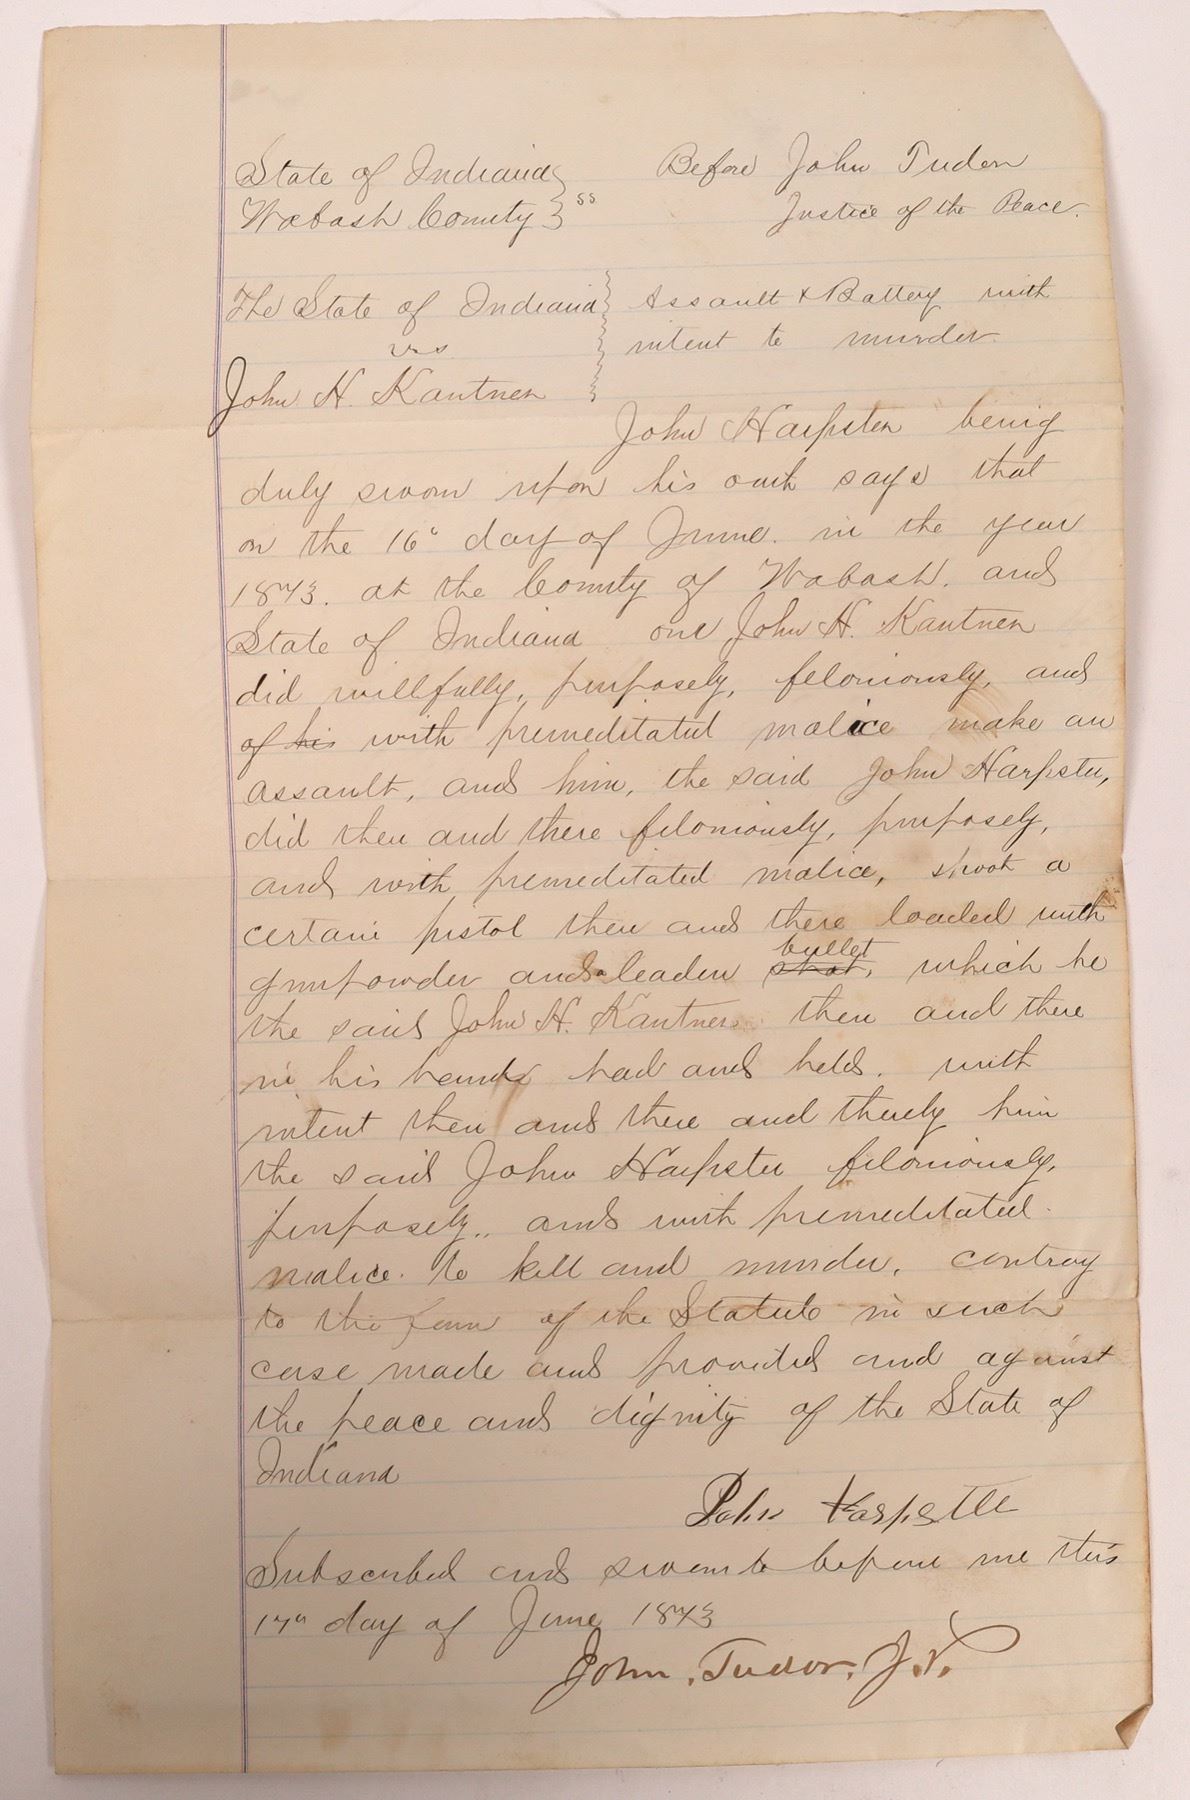 State of Indiana } Before John Tudor
Wabash County } ss Justice of the Peace.
The State of Indiana } Assault & Battery with
vrs } intent to murder.
John H. Kantner }
John Harpster being
duly sworn upon his oath says that
on the 16" day of June. in the year
1873. at the County of Wabash. and
State of Indiana one John H. Kantner
did willfully, purposely, feloniously, and
of his with premeditated malice make an
assault, and him, the said John Harpster,
did then and there feloniously, purposely,
and with premeditated malice, shoot a
certain pistol then and there loaded with
bullet
gunpowder and a leaden shot, which he
the said John H. Kantner then and there
in his hands had and held. with
intent then and there and thereby him
the said John Harpster feloniously,
purposely, and with premeditated
malice. to kill and murder, contray
to the form of the Statute in such
case made and provided and against
the peace and dignity of the State of
Indiana
John Harpster
Subscribed and sworn to before me this
17" day of June 1873
John. Tudor, J.P.